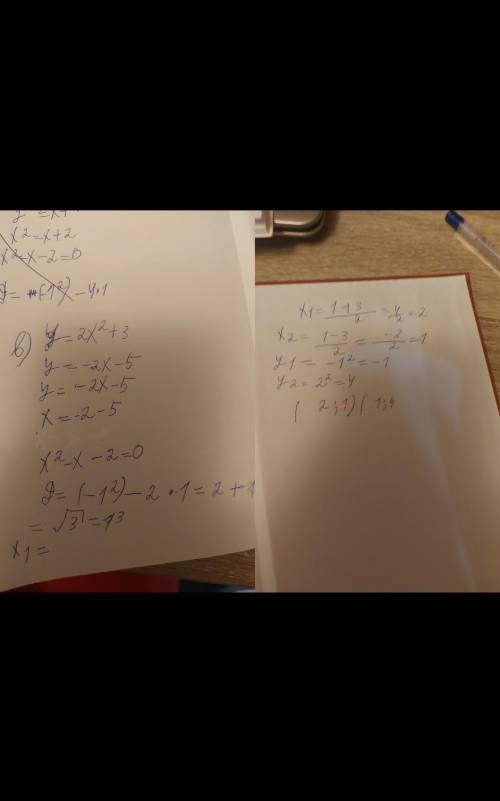 y = x +
x² = x + 2
x² - x - 2 = 0
D = (-1²) - 4·1
в) y = 2x² + 3
y = -2x - 5
y = -2x - 5
x = -2 - 5
x² - x - 2 = 0
D = (-1²) - 2 · 1 = 2 + 1
= √3 = 13
x1 =
x1 = 1+3/2 = 4/2 = 2
x2 = 1-3/2 = -2/2 = 1
y1 = -1² = -1
y2 = 2² = 4
( 2 ; 1) ( 1;4